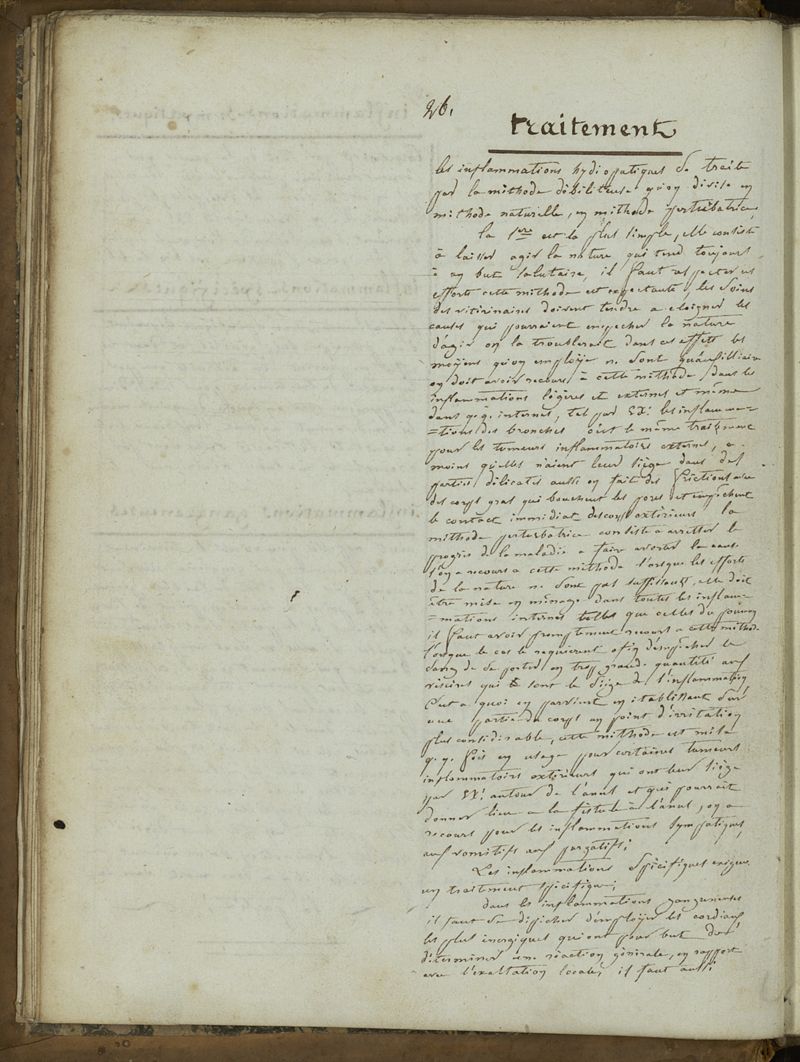 26.
traitement
les inflammations hydiopatiques se traite
par la méthode débilitense qu'on divise en
méthode naturelle, en méthode perturbatrice,
la 1ere est la plus simple, elle consiste
à laisser agir la nature qui tend toujours
à un but salutaire, il faut respecter ces
efforts cette méthode est expectante, les soins
des vétérinaires doivent tendre a eloigner les
causes qui pourraient empecher la nature
d'agir on la troublerait dans ces effets les
moyens qu'on employe ne sont qu'auxilliaire
on doit avoir recours à cette méthode dans les
inflammations légères et externes et même
dans q.q. internes, tel par EX: les inflamma=
=tions des bronches c'est le même traitement
pour les tumeurs inflammatoires externes, a
moins qu'elles n'aient leur siège dans des
parties délicates aussi on fait des frictions avec
des corps gras qui bouchent les pores et empêchent
le contact immédiat des corps extérieurs la
méthode perturbatrice consiste a arretter le
progrès de la maladie a faire avorter la cause
l'on a recours a cette méthode lorsque les efforts
de la nature ne sont pas suffisants, elle doit
être mise en ménage dans toutes les inflam=
=mations internes telles que celles du poumon
il faut avoir promptement recours a cette méthode
lorsque le cas le requierent afin d'empêcher le
sang de se porter en trop grande quantité aux
viscères qui sont le siège de l'inflammation
C'est a quoi on parvient en établissant sur
une partie du corps un point d'irritation
plus considérable, cette méthode est mise
q.q. fois en usage pour certaines tumeurs
inflammatoires extérieurs qui ont leur siège
par EX: autour de l'anus et qui pourrait
donner lieu a la fistule à l'anus, on a
recours pour les inflammations sympatiques
aux vomitifs aux purgatifs;
Les inflammations spécifiques exigent
un traitement spécifique;
dans les inflammations gangreneuses
il faut se dépêcher d'employer les cordiaux
les plus énergiques qui ont pour but de
déterminer une réaction générale, en rapport
avec l'exaltation locale, il faut aussi